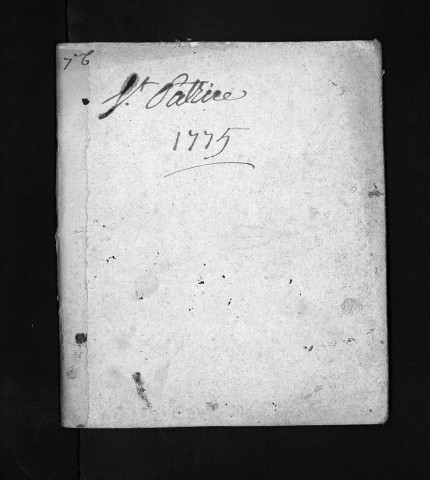 76
St. Patrice
1775